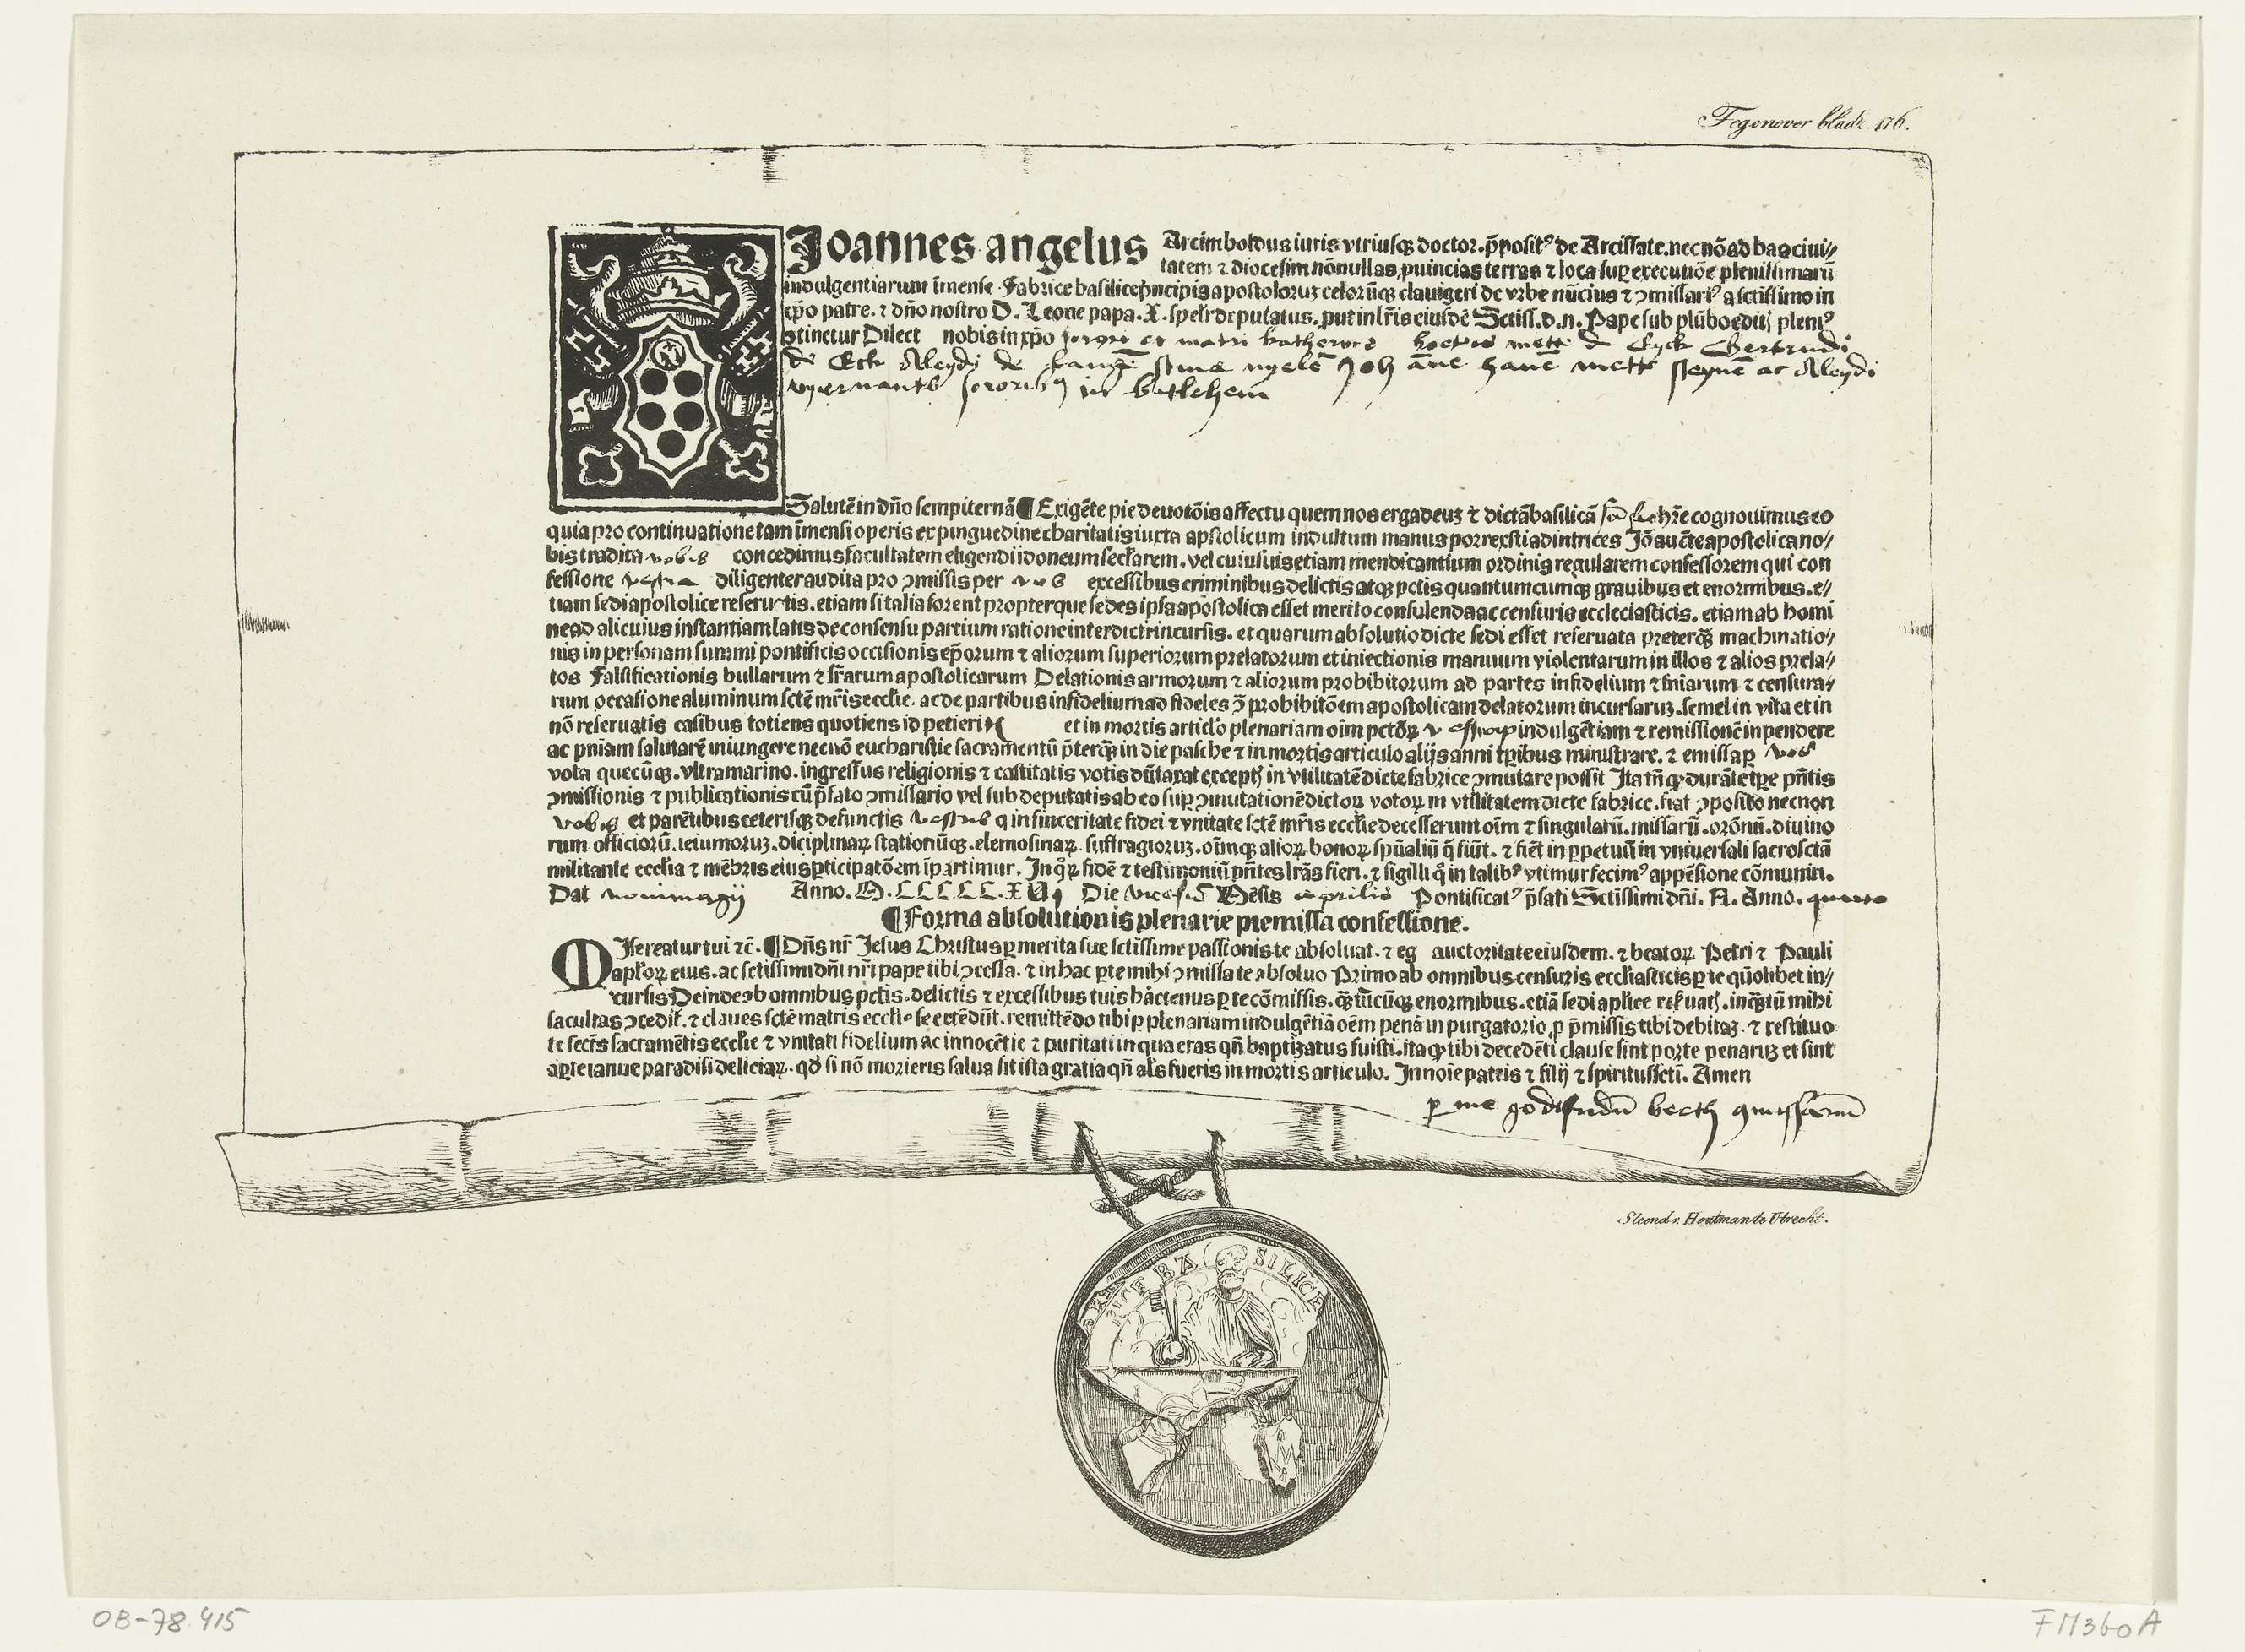 Tegenover bladz. 176.
Joannes angelus Arcimboldus iuris vtriusqꝫ doctor. p̄posit⁹ de Arcissate. necnō ad hac ciui⸗
tatem ⁊ diocesim nōnullas ꝓuincias terras ⁊ loca sup executiōe plenissimarū
indulgentiarum īmense Fabrice basilice pncipis apostoloruꝫ celorūqꝫ clauigeri de vrbe nūcius ⁊ ↄmissari⁹ a sctissimo in
xp̄o patre. ⁊ dn̄o nostro D. Leone papa. X. deputatus. ꝓut in lr̄is eiusdē Sctiss. d. n. Pape sub plūbo editꝭ pleni⁹
ↄtinetur Dilect nobis in xp̄o et matri katherine mette de Eyck Ghertrudi
de Eck Aleydi de stine nyelē Joh āne hanē mette steynē ac Aleydi
sororibꝫ in betlehem
Salutē in dn̄o sempiternā ¶ Exigēte pie deuotōis affectu quem nos erga deuꝫ ⁊ dictā basilicā cognouimus eo
quia pro continuatione tam īmensi operis ex pinguedine charitatis iuxta apostolicum indultum manus porrexsti adiutrices Jō aucte apostolica no⸗
bis tradita vobis concedimus facultatem eligendi idoneum seclarem. vel cuiusuis etiam mendicantium ordinis regularem confessorem qui con
fessione vestra diligenter audita pro ↄmissis per vos excessibus criminibus delictis atqꝫ pctis quantumcumqꝫ grauibus et enormibus. e⸗
tiam sedi apostolice reseruatis. etiam si talia forent propter que sedes ipsa apostolica esset merito consulenda ac censuris ecclesiasticis. etiam ab homi
ne ad alicuius instantiam latis de consensu partium ratione interdicti incursis. et quarum absolutio dicte sedi esset reseruata preterqꝫ machinatio⸗
nis in personam summi pontificis occisionis ep̄orum ⁊ aliorum superiorum prelatorum et iniectionis manuum violentarum in illos ⁊ alios prela⸗
tos Falsificationis bullarum ⁊ lr̄arum apostolicarum Delationis armorum ⁊ aliorum prohibitorum ad partes infidelium ⁊ sniarum ⁊ censura⸗
rum occasione aluminum sctē mr̄is eccl̄ie. ac de partibus infidelium ad fideles ↄ̄ prohibitōem apostolicam delatorum incursaruꝫ. semel in vita et in
nō reseruatis casibus totiens quotiens id petieri et in mortis articl̄o plenariam oīm pctōꝝ vestroꝝ indulgētiam ⁊ remissionē inpendere
ac pn̄iam salutarē iniungere necnō eucharistie sacramentū p̄terqꝫ in die pasche ⁊ in mortis articulo alijs anni tp̄ibus ministrare. ⁊ emissa ꝑ vos
vota quecūqꝫ. vltramarino. ingressus religionis ⁊ castitatis votis dūtaxat exceptꝭ in vtilitatē dicte fabrice ↄmutare possit Ita tn̄ qꝙ durāte tp̄e pn̄tis
ↄmissionis ⁊ publicationis cū p̄fato ↄmissario vel sub deputatis ab eo sup ↄmutationē dictoꝝ votoꝝ in vtilitatem dicte fabrice. fiat ↄpositio necnon
vobis et parētibus ceterisqꝫ defunctis vestris q̄ in sinceritate fidei ⁊ vnitate sctē mr̄is eccl̄ie decesserunt oīm ⁊ singularū. missarū. orōnū. diuino
rum officiorū. ieiumoruꝫ. diciplinaꝝ stationūqꝫ. elemosinaꝝ. suffragioruꝫ. oīmqꝫ alioꝝ bonoꝝ spūaliū q̄ fiūt. ⁊ fiēt in ꝑpetuū in vniuersali sacrosctā
militante ecclīa ⁊ mēbris eius ꝑticipatōem īpartimur. In qꝝ fidē ⁊ testimoniū pn̄tes lr̄as fieri. ⁊ sigilli q̊ in talib⁹ vtimur fecim⁹ appēsione cōmuniri.
Dat Anno. M. CCCCC. XVI Die Mēsis aprilis Pontificat⁹ p̄fati Sctissimi dn̄i. N. Anno. quarto
¶ Forma absolutionis plenarie premissa confessione.
Misereatur tui ⁊c̄. ¶ Dn̄s nr̄ Jesus Christus ꝑ merita sue sctissime passionis te absoluat. ⁊ eg auctoritate eiusdem. ⁊ beatoꝝ Petri ⁊ Pauli
apl̄oꝝ eius. ac sctissimi dn̄i nr̄i pape tibi ↄcessa. ⁊ in hac ꝑte mihi ↄmissa te absoluo Primo ab omnibus censuris eccl̄iasticis ꝑ te qūolibet in⸗
cursis Deinde ab omnibus pctis. delictis ⁊ excessibus tuis hactenus ꝑ te cōmissis. qꝫtūcūqꝫ enormibus. etiā sedi aplice reseruatꝭ. inqꝫtū mihi
facultas ↄcedit̄. ⁊ claues sctē matris eccl̄ie se extēdūt. remittēdo tibi ꝑ plenariam indulgētiā oēm penā in purgatorio ꝓ p̄missis tibi debitaꝫ. ⁊ restituo
te sctīs sacramētis eccl̄ie ⁊ vnitati fidelium ac innocētie ⁊ puritati in qua eras qn̄ baptizatus fuisti. ita qꝙ tibi decedēti clause sint porte penaruꝫ et sint
aperte ianue paradisi deliciaꝝ. qꝙ si nō morieris salua sit ista gratia qn̄ al̄s fueris in mortis articulo. In noīe patris ⁊ filij ⁊ spiritussctī. Amen
ꝑ me
Steendr. Houtman te Utrecht.
FABRICE BASILICE
OB-78.415
FM360A